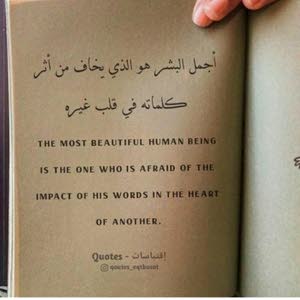 أجمل البشر هو الذي يخاف من أثر
كلماته في قلب غيره
THE MOST BEAUTIFUL HUMAN BEING
IS THE ONE WHO IS AFRAID OF THE
IMPACT OF HIS WORDS IN THE HEART
OF ANOTHER.
Quotes - إقتباسات